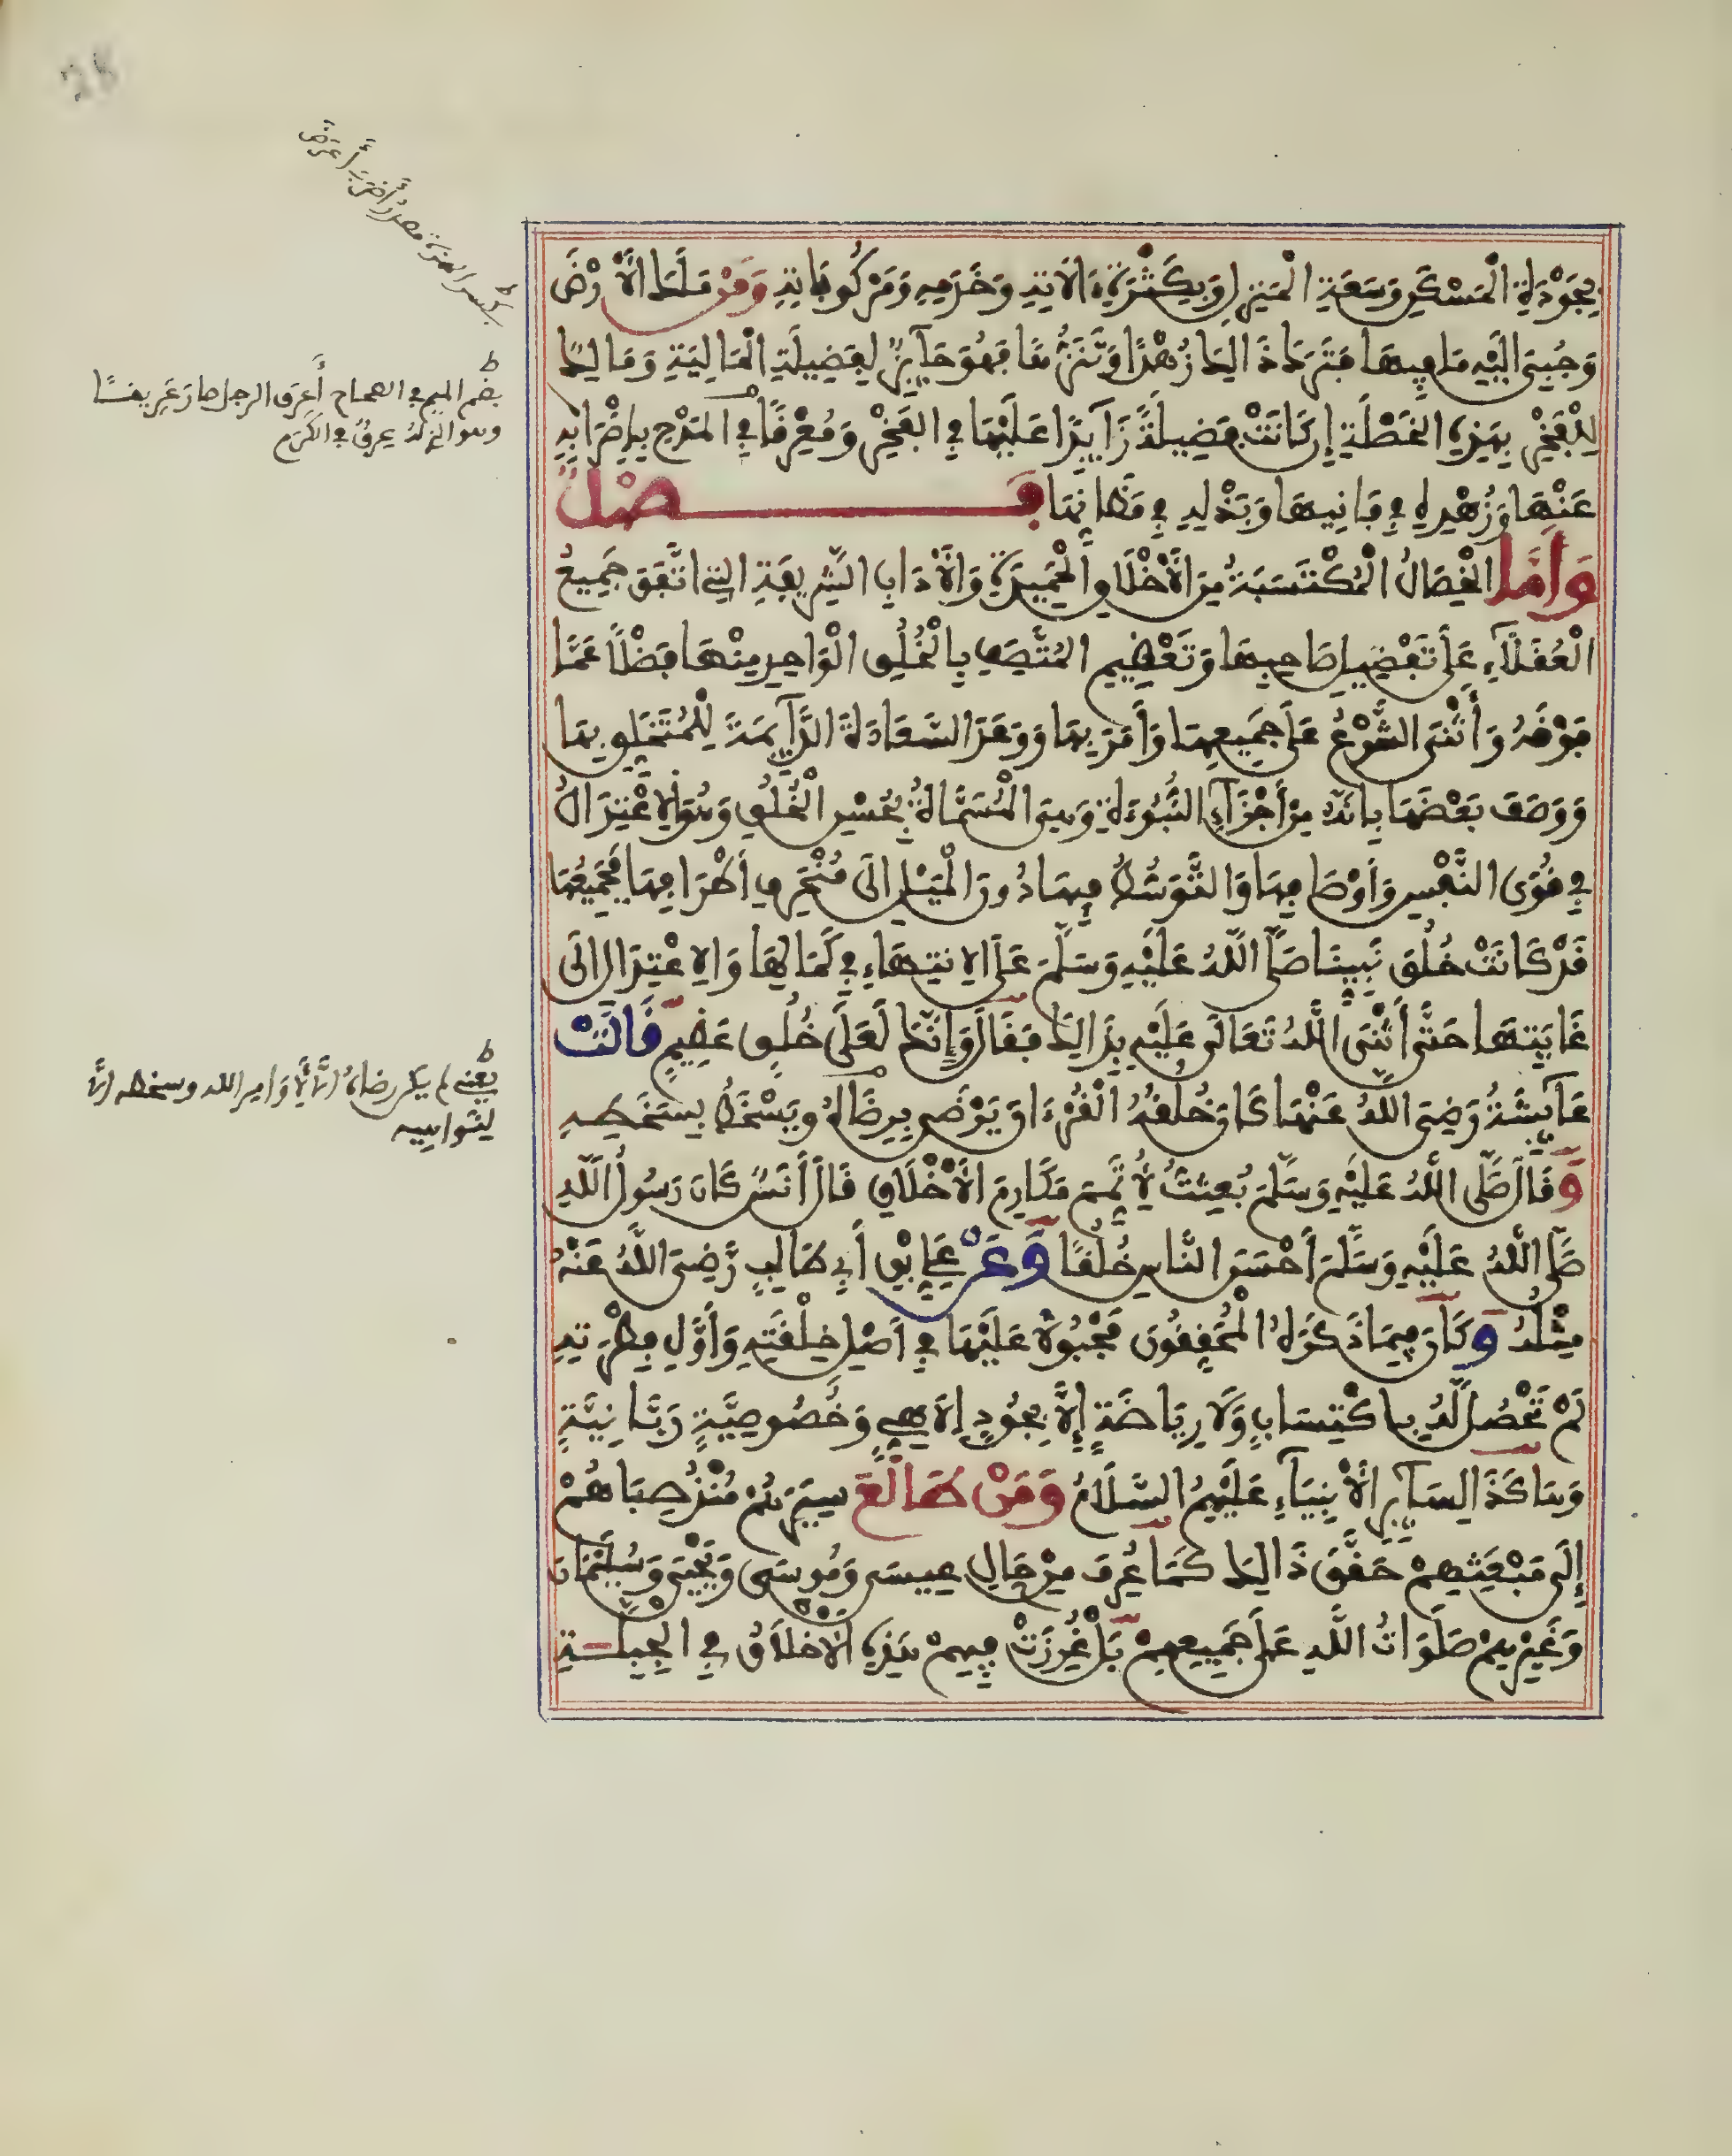 بِجَوْدَةِ الْمَسْكَنِ وَسَعَةِ الْمَنزِلِ وَبِكَثْرَةِ ءَالَاتِهِ وَخَدَمِهِ وَمَرْكُوبَاتِهِ وَمَنْ مَلَكَ الْأَرْضَ
وَجُبِيَ إِلَيْهِ مَا فِيهَا فَتَرَكَ ذَالِكَ زُهْدًا وَتَنَزُّهًا فَهُوَ حَآئِزٌ لِفَضِيلَةِ الْمَالِيَّةِ وَمَالِكٌ
لِلْفَخْرِ بِهَذِهِ الْخَصْلَةِ إِن كَانَتْ فَضِيلَةً زَآئِدًا عَلَيْهَا فِي الْفَخْرِ وَمُعْرِقًا فِي الْمَدْحِ بِإِضْرَابِهِ
عَنْهَا وَزُهْدِهِ فِي فَانِيهَا وَبَذْلِهِ فِي مَظَانِّهَا فَصْلٌ
وَأَمَّا الْخِصَالُ الْمُكْتَسَبَةُ مِنَ الْأَخْلَاقِ الْحَمِيدَةِ وَالْأَدَابِ الشَّرِيفَةِ الَّتِي اتَّفَقَ جَمِيعُ
الْعُقَلَآءِ عَلَى تَفْضِيلِ صَاحِبِهَا وَتَعْظِيمِ الْمُتَّصِفِ بِالْخُلُقِ الْوَاحِدِ مِنْهَا فَضْلًا عَمَّا
فَوْقَهُ وَأَثْنَى الشَّرْعُ عَلَى جَمِيعِهَا وَأَمَرَ بِهَا وَوَعَدَ السَّعَادَةَ الدَّآئِمَةَ لِلْمُتَخَلِّقِ بِهَا
وَوَصَفَ بَعْضَهَا بِأَنَّهُ مِنْ أَجْزَآءِ النُّبُوءَةِ وَهِيَ الْمُسَمَّاةُ بِحُسْنِ الْخُلُقِ وَهُوَ الِاعْتِدَالُ
فِي قُوَى النَّفْسِ وَأَوْصَافِهَا وَالتَّوَسُّطُ فِيهَا دُونَ الْمَيْلِ إِلَى مُنْحَرِفِ أَطْرَافِهَا فَجَمِيعُهَا
قَدْ كَانَتْ خُلُقَ نَبِيِّنَا صَلَّى اللَّهُ عَلَيْهِ وَسَلَّمَ عَلَى الِانتِهَاءِ فِي كَمَالِهَا وَالِاعْتِدَالِ إِلَى
غَايَتِهَا حَتَّى أَثْنَى اللَّهُ تَعَالَى عَلَيْهِ بِذَالِكَ فَقَالَ وَإِنَّكَ لَعَلَى خُلُقٍ عَظِيمٍ قَالَتْ
عَآئِشَةُ رَضِيَ اللَّهُ عَنْهَا كَانَ خُلُقُهُ الْقُرْءَانَ يَرْضَى بِرِضَاهُ وَيَسْخَطُ بِسَخَطِهِ
وَقَالَ صَلَّى اللَّهُ عَلَيْهِ وَسَلَّمَ بُعِثْتُ لِأُتَمِّمَ مَكَارِمَ الْأَخْلَاقِ قَالَ أَنَسٌ كَانَ رَسُولُ اللَّهِ
صَلَّى اللَّهُ عَلَيْهِ وَسَلَّمَ أَحْسَنَ النَّاسِ خُلُقًا وَعَنْ عَلِيِّ بْنِ أَبِي طَالِبٍ رَّضِيَ اللَّهُ عَنْهُ
مِثْلُهُ وَكَانَ فِيمَا ذَكَرَهُ الْمُحَقِّقُونَ مَجْبُولًا عَلَيْهَا فِي أَصْلِ خِلْقَتِهِ وَأَوَّلِ فِطْرَتِهِ
لَمْ تَحْصُل لَّهُ بِاكْتِسَابٍ وَلَا رِيَاضَةٍ إِلَّا بِجُودٍ إِلَاهِيٍّ وَخُصُوصِيَّةٍ رَبَّانِيَّةٍ
وَهَاكَذَا لِسَآئِرِ الْأَنْبِيَآءِ عَلَيْهِمُ السَّلَامُ وَمَنْ طَالَعَ سِيَرَهُمْ مُنْذُ صِبَاهُمْ
إِلَى مَبْعَثِهِمْ حَقَّقَ ذَالِكَ كَمَا عُرِفَ مِنْ حَالِ عِيسَى وَمُوسَى وَيَحْيَى وَسُلَيْمَانَ
وَغَيْرِهِمْ صَلَوَاتُ اللَّهِ عَلَى جَمِيعِهِمْ بَلْ غُرِزَتْ فِيهِمْ هَذِهِ الْأَخْلَاقُ فِي الْجِبِلَّةِ
بكسر الهمزة مصدر أضرب أعرض
بضم الميم في الصحاح أعرق الرجل صار عريقا
وهو الذي له عرق في الكرم
يعني لم يكن رضاه إلا لأوامر الله وسخطه إلا
لنواهيه